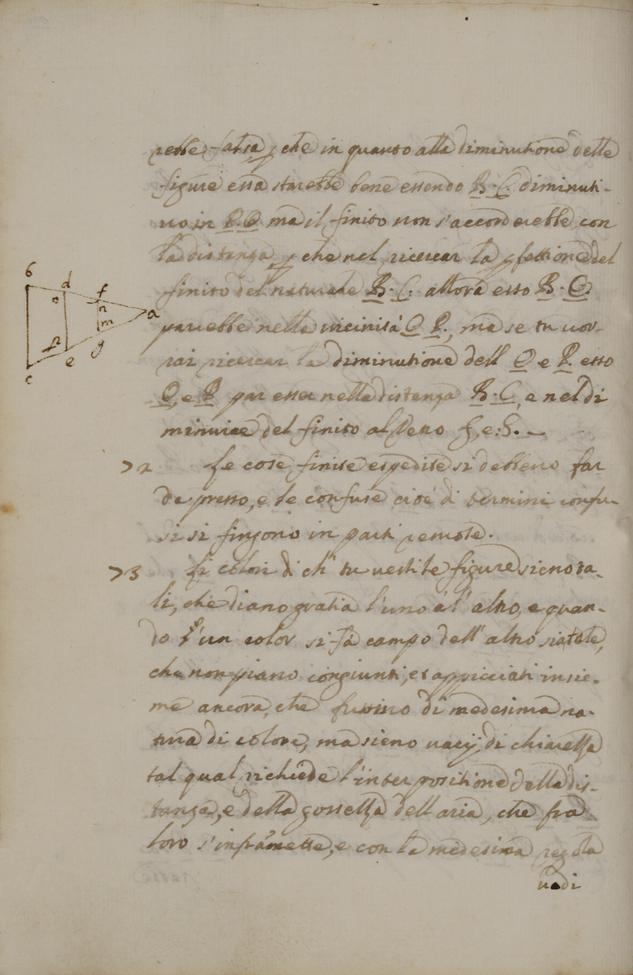 rebbe falsa, che in quanto alla diminutione delle
figure essa starebbe bene essendo B. C. diminuti-
uo in P. O. ma il finito non s'accorderebbe con
la distanza, che nel ricercar la pfettione del
finito del naturale B. C. allora esso B. C.
parrebbe nella uicinità O P., ma se tu uor-
rai ricercar la diminutione dell O e P. esso
O, e P par esser nella distanza B. C, e nel di
minuire del finito al uero f. e. g.
72 Le cose finite espedite si debbeno far
da presso, e le confuse cioè di termini confu-
si si fingono in parti remote.
73 Li colori di ch' tu uesti le figure sieno ta-
li, che diano gratia l'uno a l' altro, e quan-
do l'un color si fà campo dell' altro sia tale,
che non piano congiunti, et appicciati insie-
me ancora, che fussino di medesima na-
tura di colore, ma sieno uarij di chiarezza
tal qual richiede l'interpositione della dis-
tanza, e della grossezza dell aria, che fra
loro s'inframette, e con la medesima regola
uadi
b
d
f
a
o
n
m
c
e
g